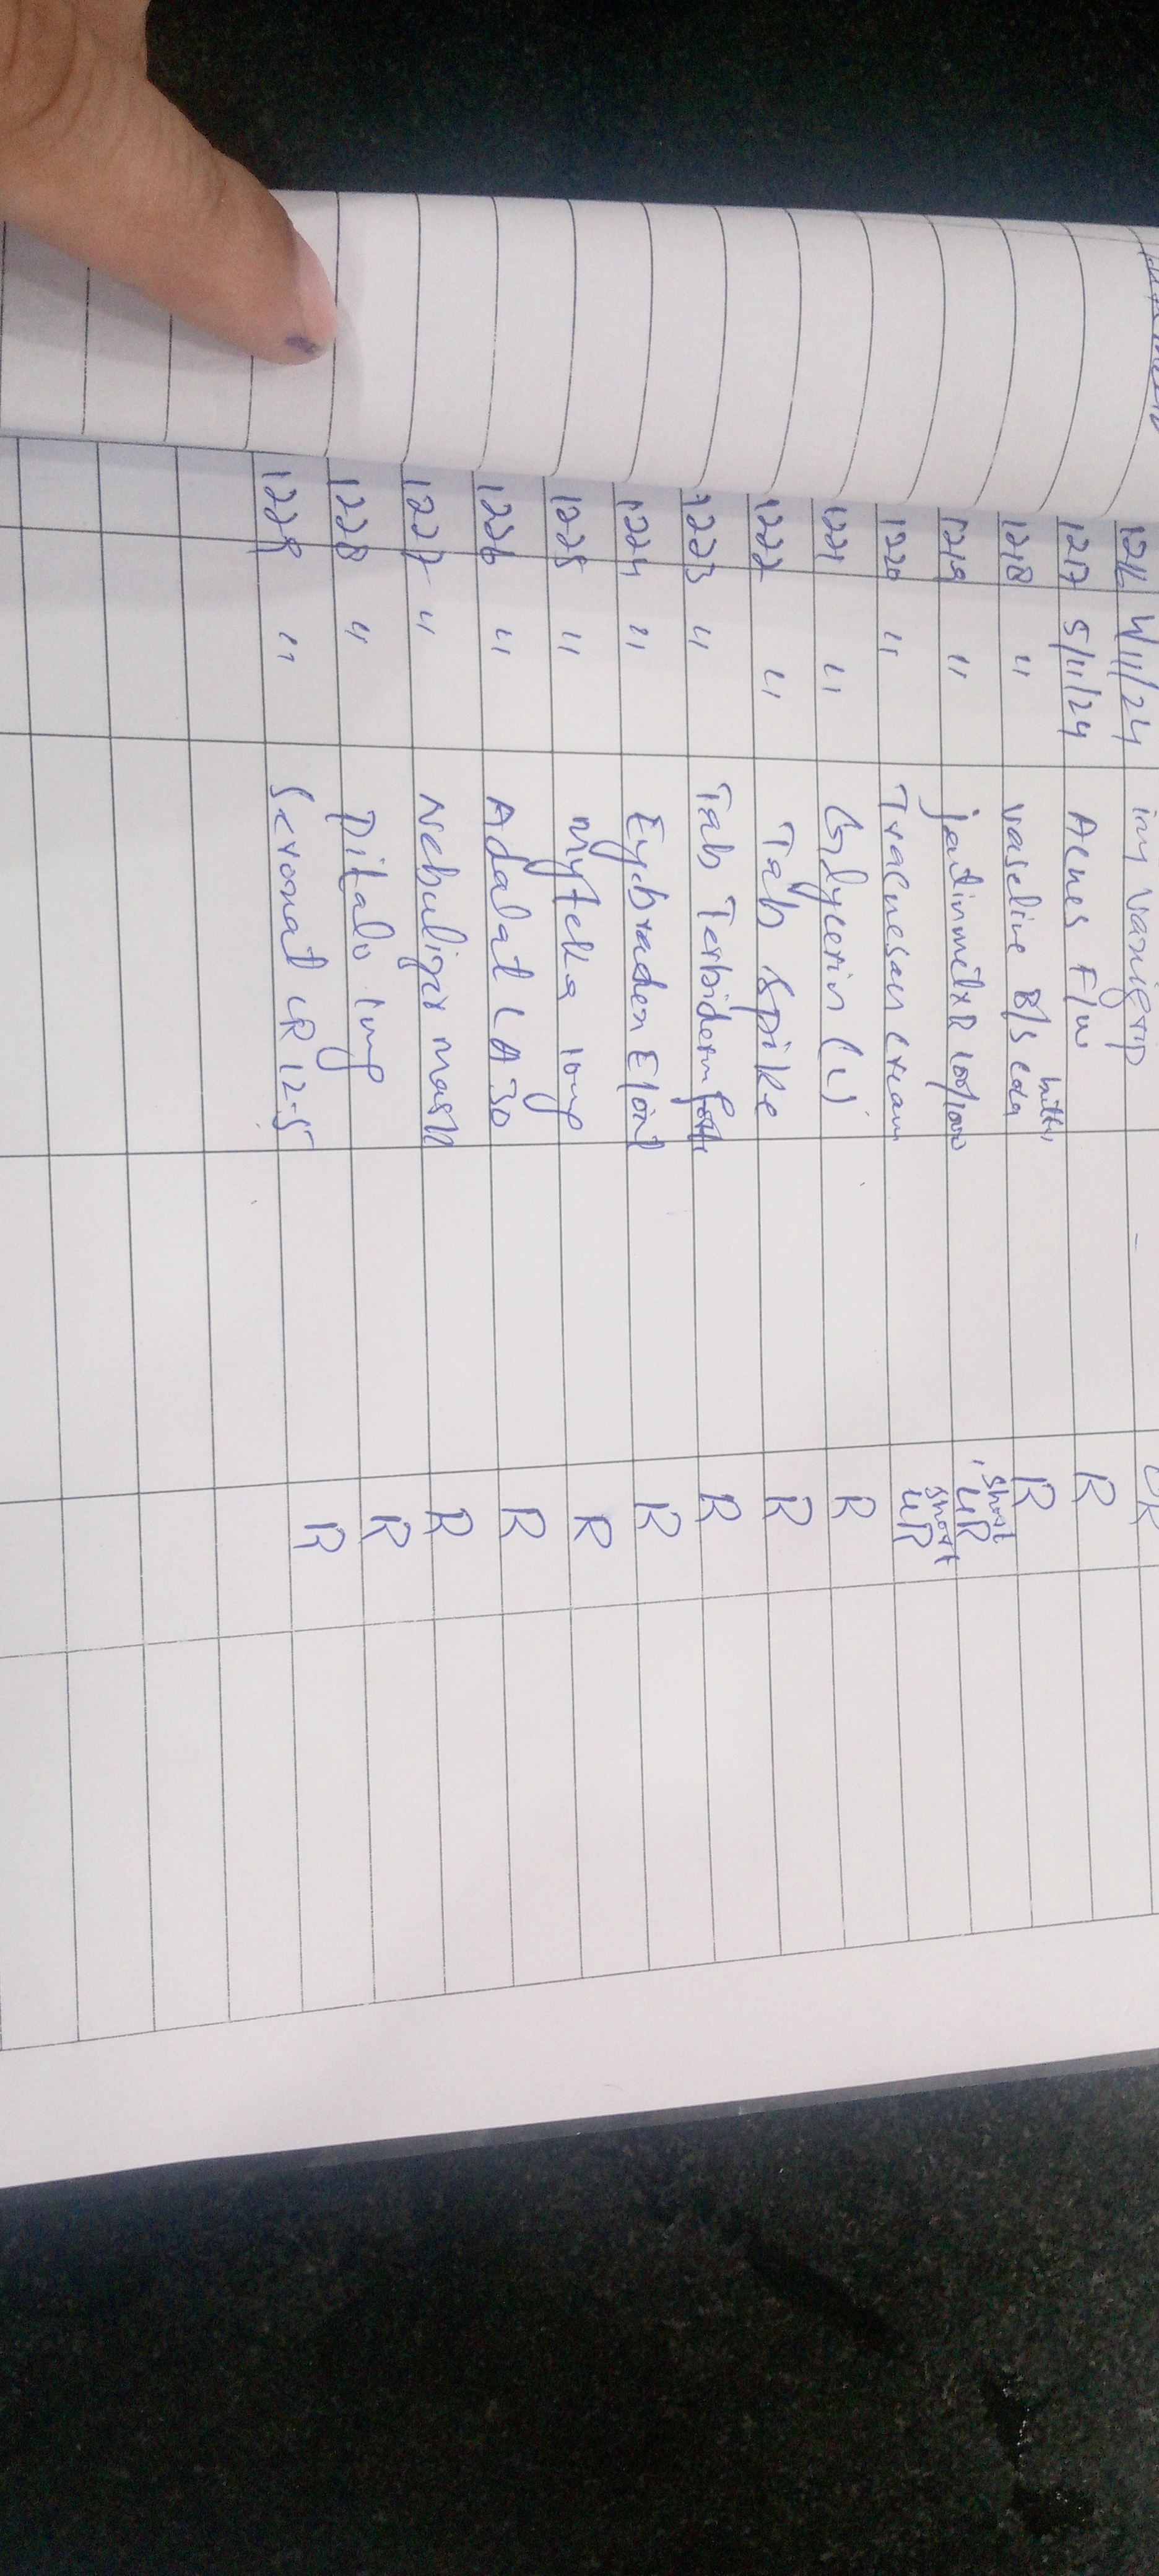 1216 4/11/24 inj Vanigrip UR
1217 5/11/24 Acnes F/W R
1218 " Vaseline B/S Coco butter R
1219 " 100/1000 UR short
1220 " cream UR short
1221 " Glycerin (L) R
1222 " Tab Spike R
1223 " Tab Terbiderm forte R
1224 " Eyebraden E/oint R
1225 " Myteka 10mg R
1226 " Adalat LA 30 R
1227 " Nebulizer mask R
1228 " Pitalo 1mg R
1229 " Seronat CR 12.5 R